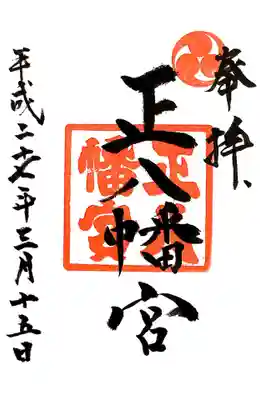 奉拝、
正八幡宮
正八
幡宮
平成二十七年三月十五日